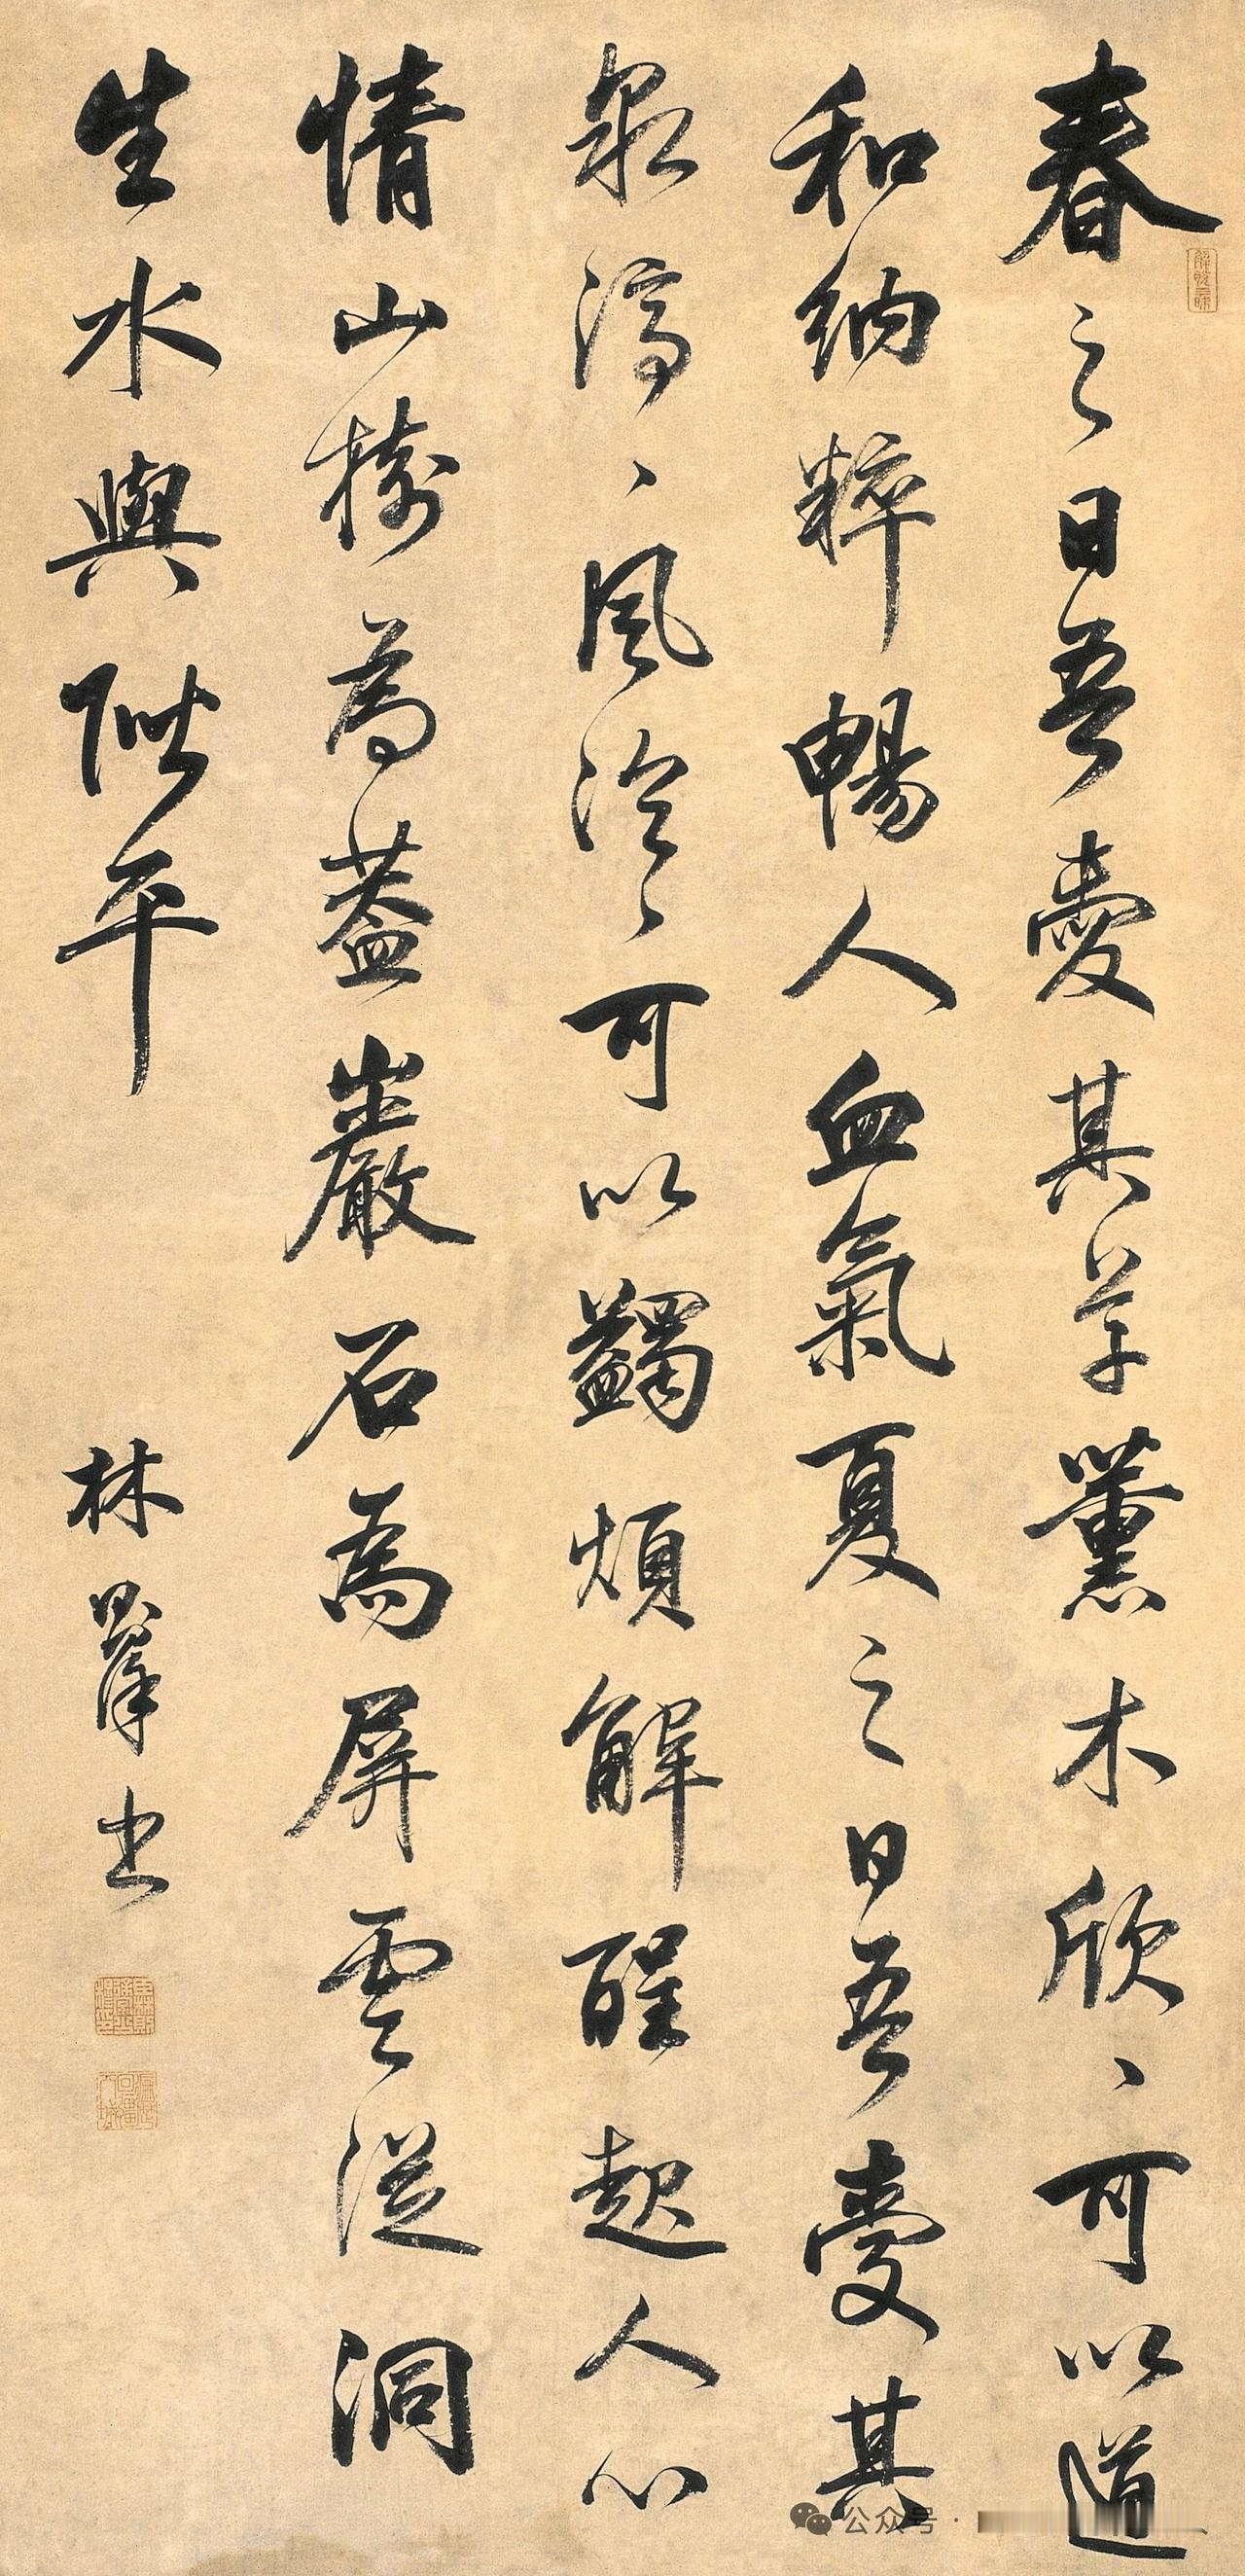 春之日吾愛其草薰木欣、可以道
和納粹暢人血氣夏之日吾愛其
泉渟、風泠、可以蠲煩解酲起人心
情山樹為蓋巖石為屏雲從洞
生水與階平
林書
公众号 ·